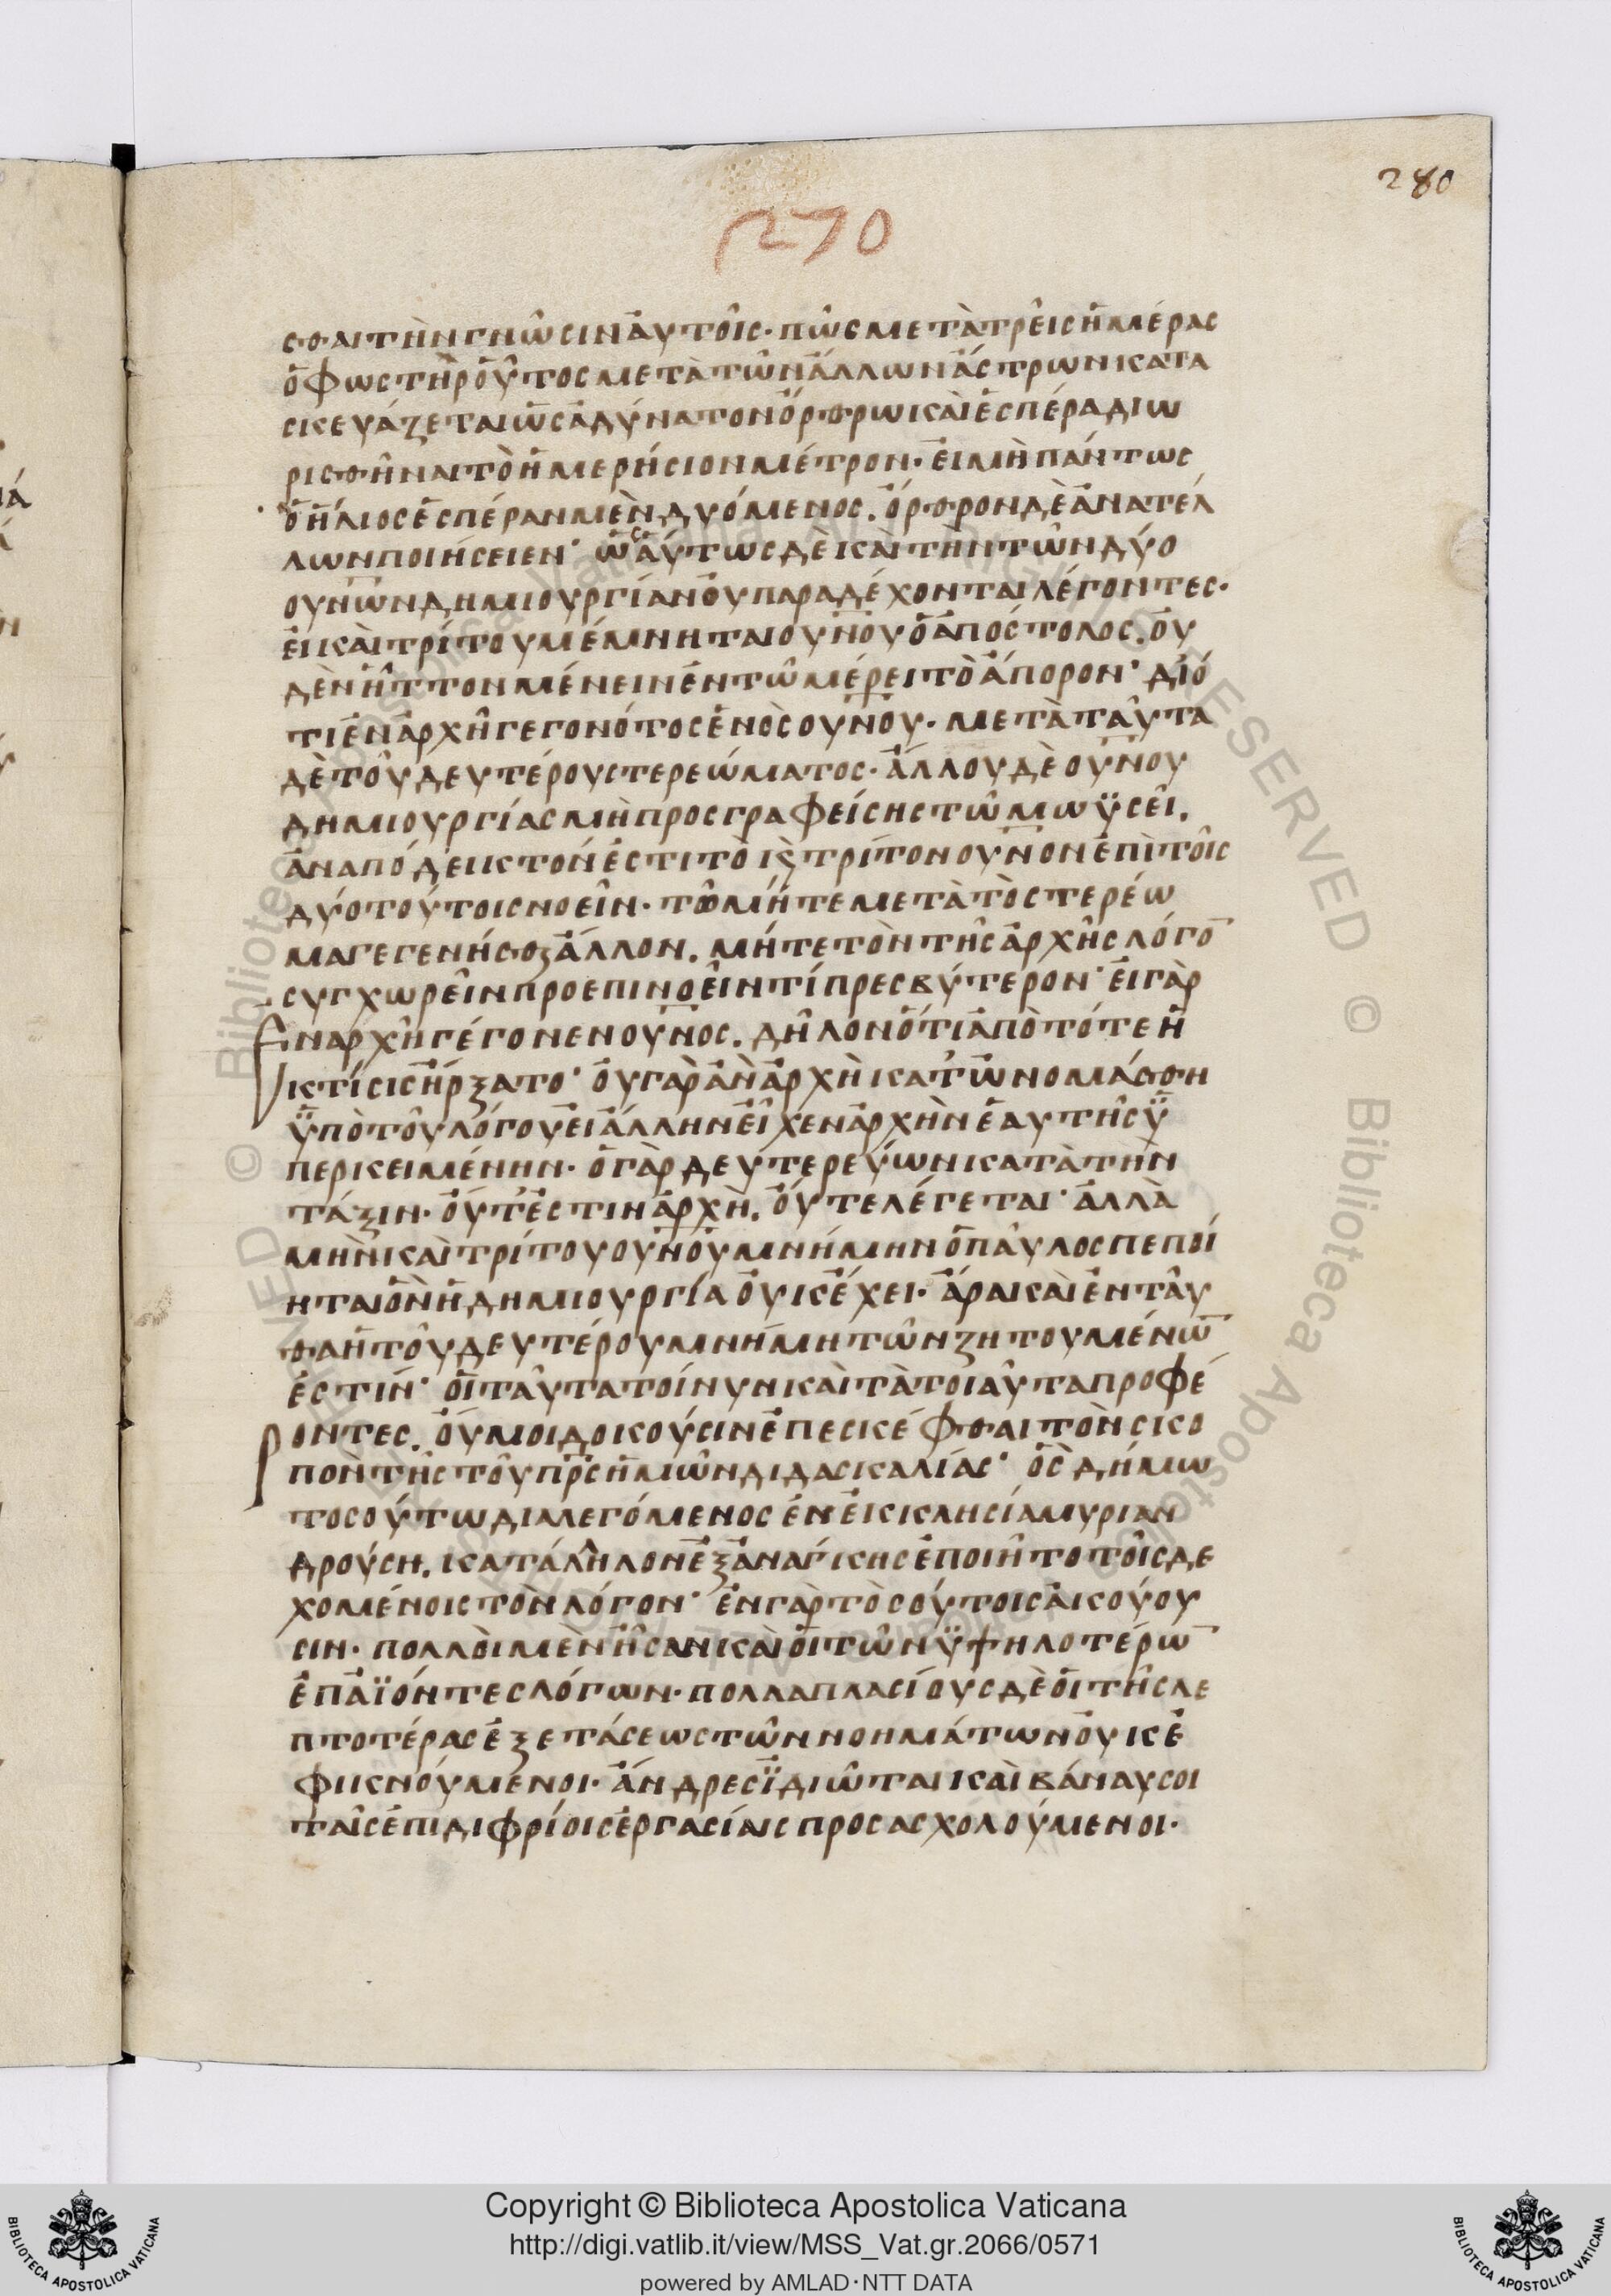 280
270
σθαι τὴν γνῶσιν αὐτοῖς· πῶς μετὰ τρεῖς ἡμέρας
ὁ φωστὴρ οὗτος μετὰ τῶν ἄλλων ἄστρων κατα
σκευάζεται ὡς ἀδύνατον ὄρθρω καὶ ἑσπέρα διω
ρισθῆναι τὸ ἡμερήσιον μέτρον· εἰ μὴ πάντως
ὁ ἥλιος ἑσπέραν μὲν δυόμενος. ὄρθρον δὲ ἀνατέλ
λων ποιήσειεν· ὡσαύτως δὲ καὶ τὴν τῶν δύο
ουνων δημιουργίαν οὐ παραδέχονται λέγοντες·
εἰ καὶ τρίτου μέμνηται ουνου ὁ ἀπόστολος. οὐ
δὲν ἧττον μένειν ἐν τῶ μέρει τὸ ἄπορον· διό
τι ἐν ἀρχῆ γεγονότος ἑνὸς ουνου· μετὰ ταῦτα
δὲ τοῦ δευτέρου στερεώματος· ἄλλου δὲ ουνου
δημιουργίας μὴ προσγραφείσης τῶ μωϋσεῖ.
ἀναπόδεικτόν ἐστι τὸ κ̣ τρίτον ουνον ἐπὶ τοῖς
δύο τούτοις νοεῖν· τῶ μήτε μετὰ τὸ στερέω
μα γεγενῆσθαι ἄλλον. μήτε τὸν τῆς ἀρχῆς λόγο̄
συγχωρεῖν προεπινοεῖν τί πρεσβύτερον· εἰ γὰρ
Ἐν ἀρχῆ γέγονεν ουνος. δῆλον ὅτι ἀπὸ τότε ἡ
κτίσις ἤρξατο· οὐ γὰρ ἂν ἀρχὴ κατωνομάσθη
ὑπὸ τοῦ λόγου εἰ ἄλλην εἶχεν ἀρχὴν ἑαυτῆς ὑ
περκειμένην· ὁ γὰρ δευτερεύων κατὰ τὴν
τάξιν· οὔτ' ἐστιν ἀρχὴ. οὔτε λέγεται· ἀλλὰ
μὴν καὶ τρίτου ουνου μνήμην ὁ παῦλος πεποί
ηται ὃν ἡ δημιουργία οὐκ ἔχει· ἄρα καὶ ἐνταῦ
θα ἡ τοῦ δευτέρου μνήμη τῶν ζητουμένω̄
ἐστιν· οἱ ταῦτα τοίνυν καὶ τὰ τοιαῦτα προφέ
ροντες. οὔ μοι δοκοῦσιν ἐπεσκέφθαι τὸν σκο
πὸν τῆς τοῦ πρς ἡμῶν διδασκαλίας· ὃς δήμω
τοσούτω διαλεγόμενος ἐν ἐκκλησία μυριαν
δρούση. κατάλληλον ἐξ ἀνάγκης ἐποιῆτο τοῖς δε
χομένοις τὸν λόγον· ἐν γὰρ τοσούτοις ἀκούου
σιν· πολλοὶ μὲν ἦσαν καὶ οἱ τῶν ὑψηλοτέρω̄
ἐπαϊόντες λόγων· πολλαπλασίους δὲ οἱ τῆς λε
πτοτέρας ἐξετάσεως τῶν νοημάτων οὐκ ἐ
φικνούμενοι· ἄνδρες ἰδιῶται καὶ βάναυσοι
ταῖς ἐπιδιφρίοις ἐργασίαις προσασχολούμενοι·
Copyright © Biblioteca Apostolica Vaticana
http://digi.vatlib.it/view/MSS_Vat.gr.2066/0571
powered by AMLAD·NTT DATA